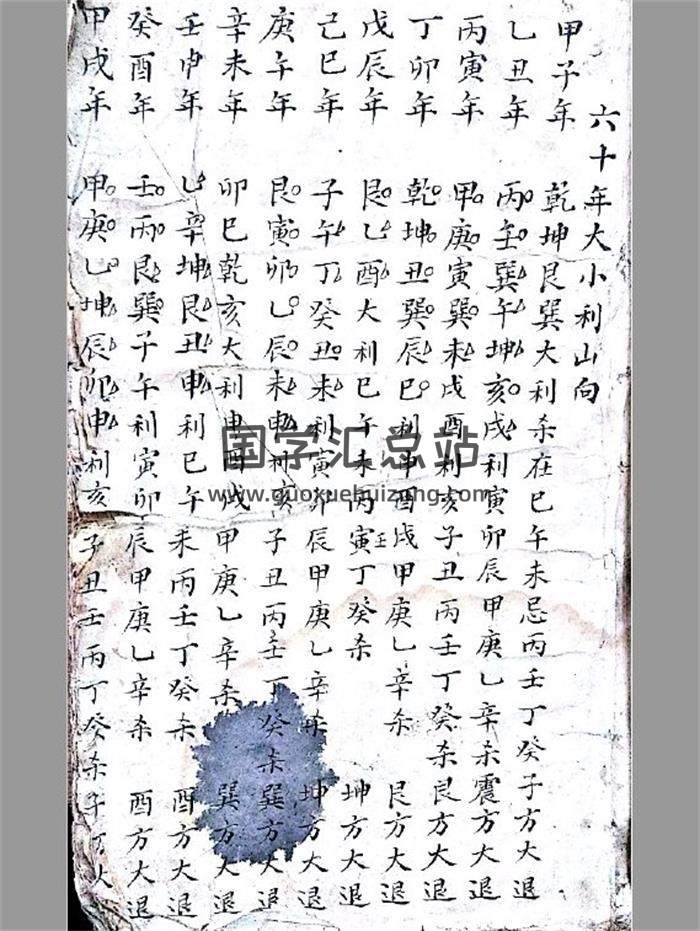 六十年大小利山向
甲子年 乾坤艮巽大利杀在巳午未忌丙壬丁癸子方大退
乙丑年 丙壬巽午坤亥戌利寅卯辰甲庚乙辛杀震方大退
丙寅年 甲庚寅巽未戌酉利亥子丑丙壬丁癸杀艮方大退
丁卯年 乾坤丑巽辰巳利申酉戌甲庚乙辛杀艮方大退
戊辰年 艮乙酉大利巳午未丙寅壬丁癸杀坤方大退
己巳年 子午丁癸丑未利寅卯辰甲庚乙辛杀坤方大退
庚午年 艮寅卯乙辰未申利亥子丑丙壬丁癸杀巽方大退
辛未年 卯巳乾亥大利申酉戌甲庚乙辛杀巽方大退
壬申年 乙辛坤艮丑申利巳午未丙壬丁癸杀酉方大退
癸酉年 壬丙艮巽子午利寅卯辰甲庚乙辛杀酉方大退
甲戌年 甲庚乙坤辰卯申利亥子丑壬丙丁癸杀子方大
国学汇总站
www.guoxuehuizong.com